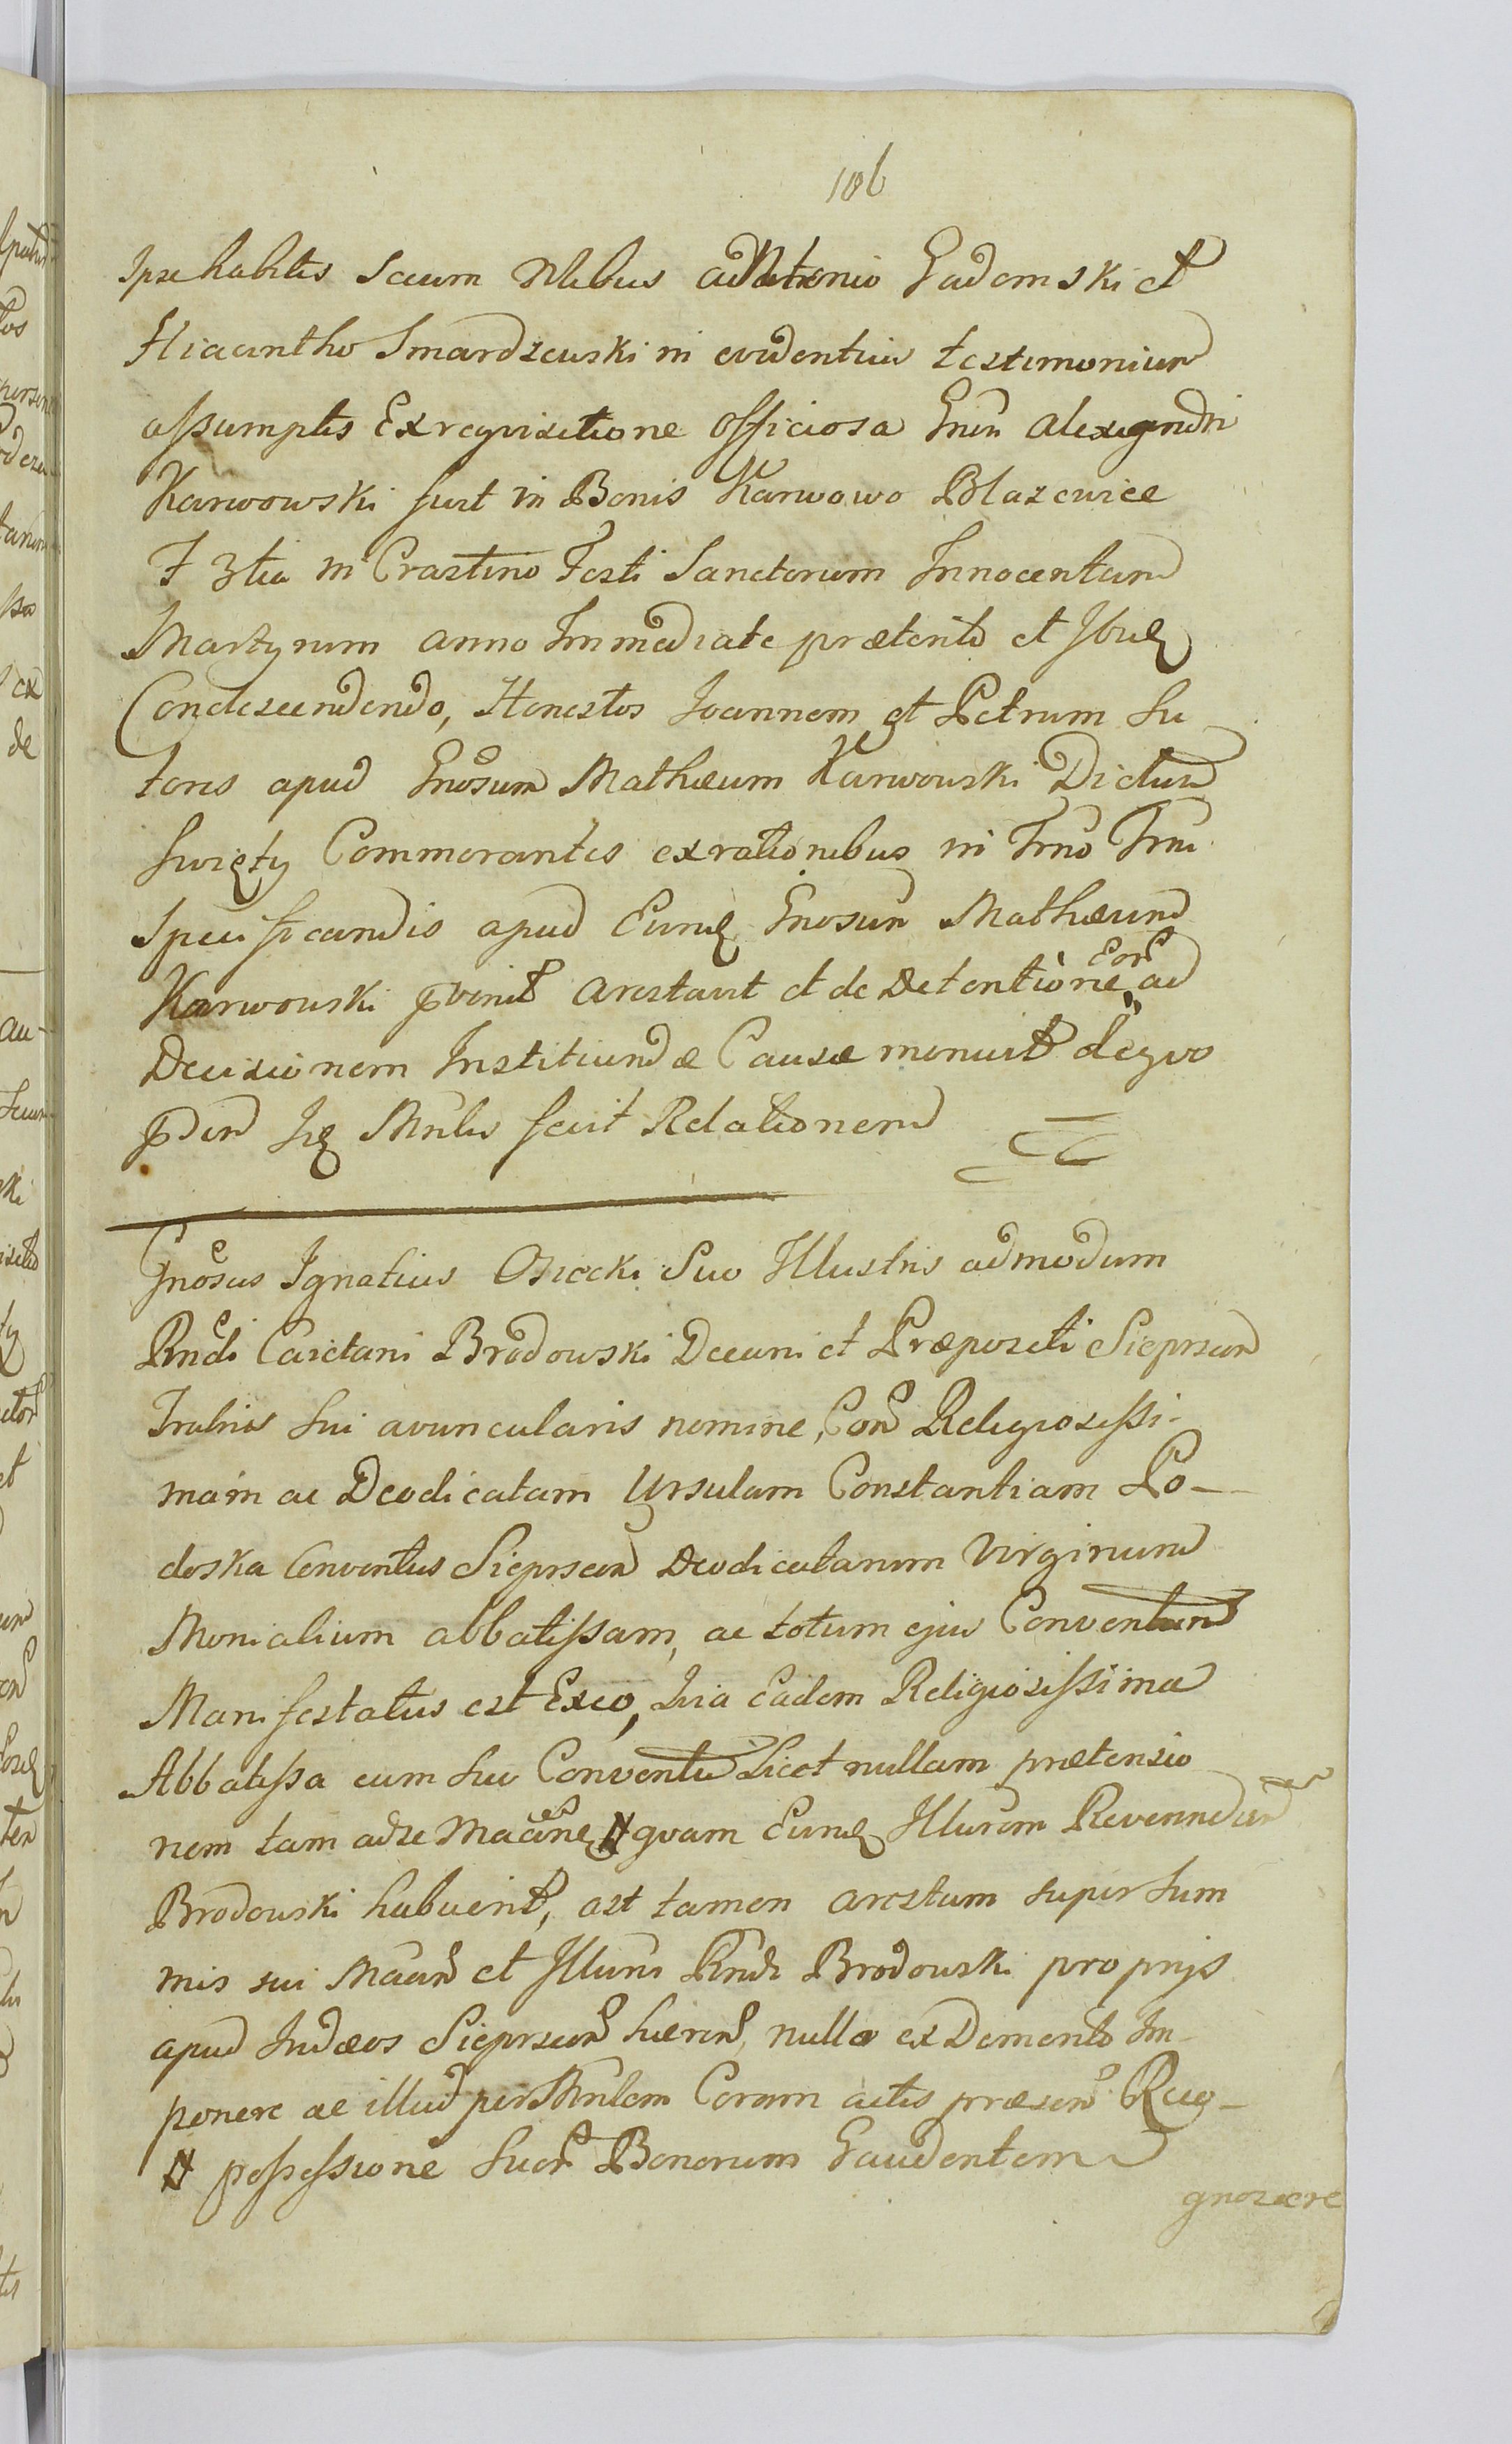 106
Ipse habitis Secum Nlibus Antonio Gadomski et
Hiacintho Smardzewski in evidentius testimonium
assumptis Ex requisitione officiosa Gnsi Alexandri
Karwowski fuit in Bonis Karwowo Błazewice
F 3tia in Crastino Festi Sanctorum Innocentum
Martyrum anno Immediate præterito et Ibidq
Condescendendo, Honestos Joannem et Petrum Su-
tores apud Gnosum Mathæum Karwowski Dictum
Swięty Commorantes ex rationibus in Trno Trni
Specificandis apud Eundq Gnosum Mathæum
Karwowski arestavit et de Detentione Eor ad
Decisionem Instituendæ Causæ monuit de quo
Mnlis fecit Relationem
Gnosus Ignatius Osiecki Suo Illustris admodum
Rndi Caietani Brodowski Decani et Præpositi Sieprscen
Fratris Sui avuncularis nomine, Con Religiosissi-
mam ac Deodicatam Ursulam Constantiam Po-
doska Conventus Sieprscen Deodicatarum Virginum
Monialium abbatissam, ac totum ejus Conventum
Manifestatus est Exeo, Quia Eadem Religiosissima
Abbatissa cum suo Conventu Licet nullam prætensio
nem tam ad se Maanem quam Eundq Illurem Reverendum
Brodowski habuerit, ast tamen arestum super sum
mis sui Maan et Illuris Rndi Brodowski proprijs
apud Judæos Sieprscen hæren, nullo ex Demerito Im-
ponere ac illud per Mnlem Coram actis præsen Reco-
possessione Suor Bonorum Gaudentem
gnoscere